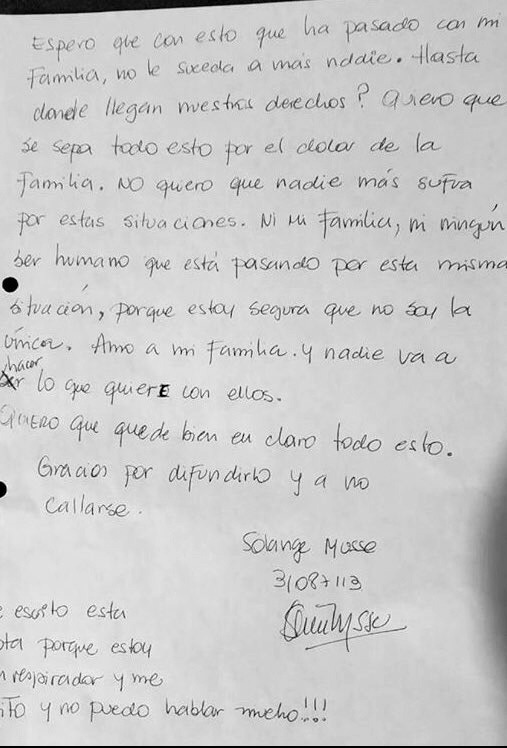 Espero que con esto que ha pasado con mi
Familia, no le suceda a más naddie. Hasta
donde llegan nuestros derechos? Quiero que
se sepa todo esto por el dolor de la
Familia. No quiero que nadie más sufra
por estas situaciones. Ni mi Familia, ni ningún
ser humano que está pasando por esta misma
situación, porque estoy segura que no soy la
única. Amo a mi Familia. y nadie va a
hacer
lo que quiere con ellos.
Quiero que quede bien en claro todo esto.
Gracias por difundirlo y a no
callarse.
Solange Musse
31087113
escrito esta
ta porque estoy
respirador y me
ito y no puedo hablar mucho!!!